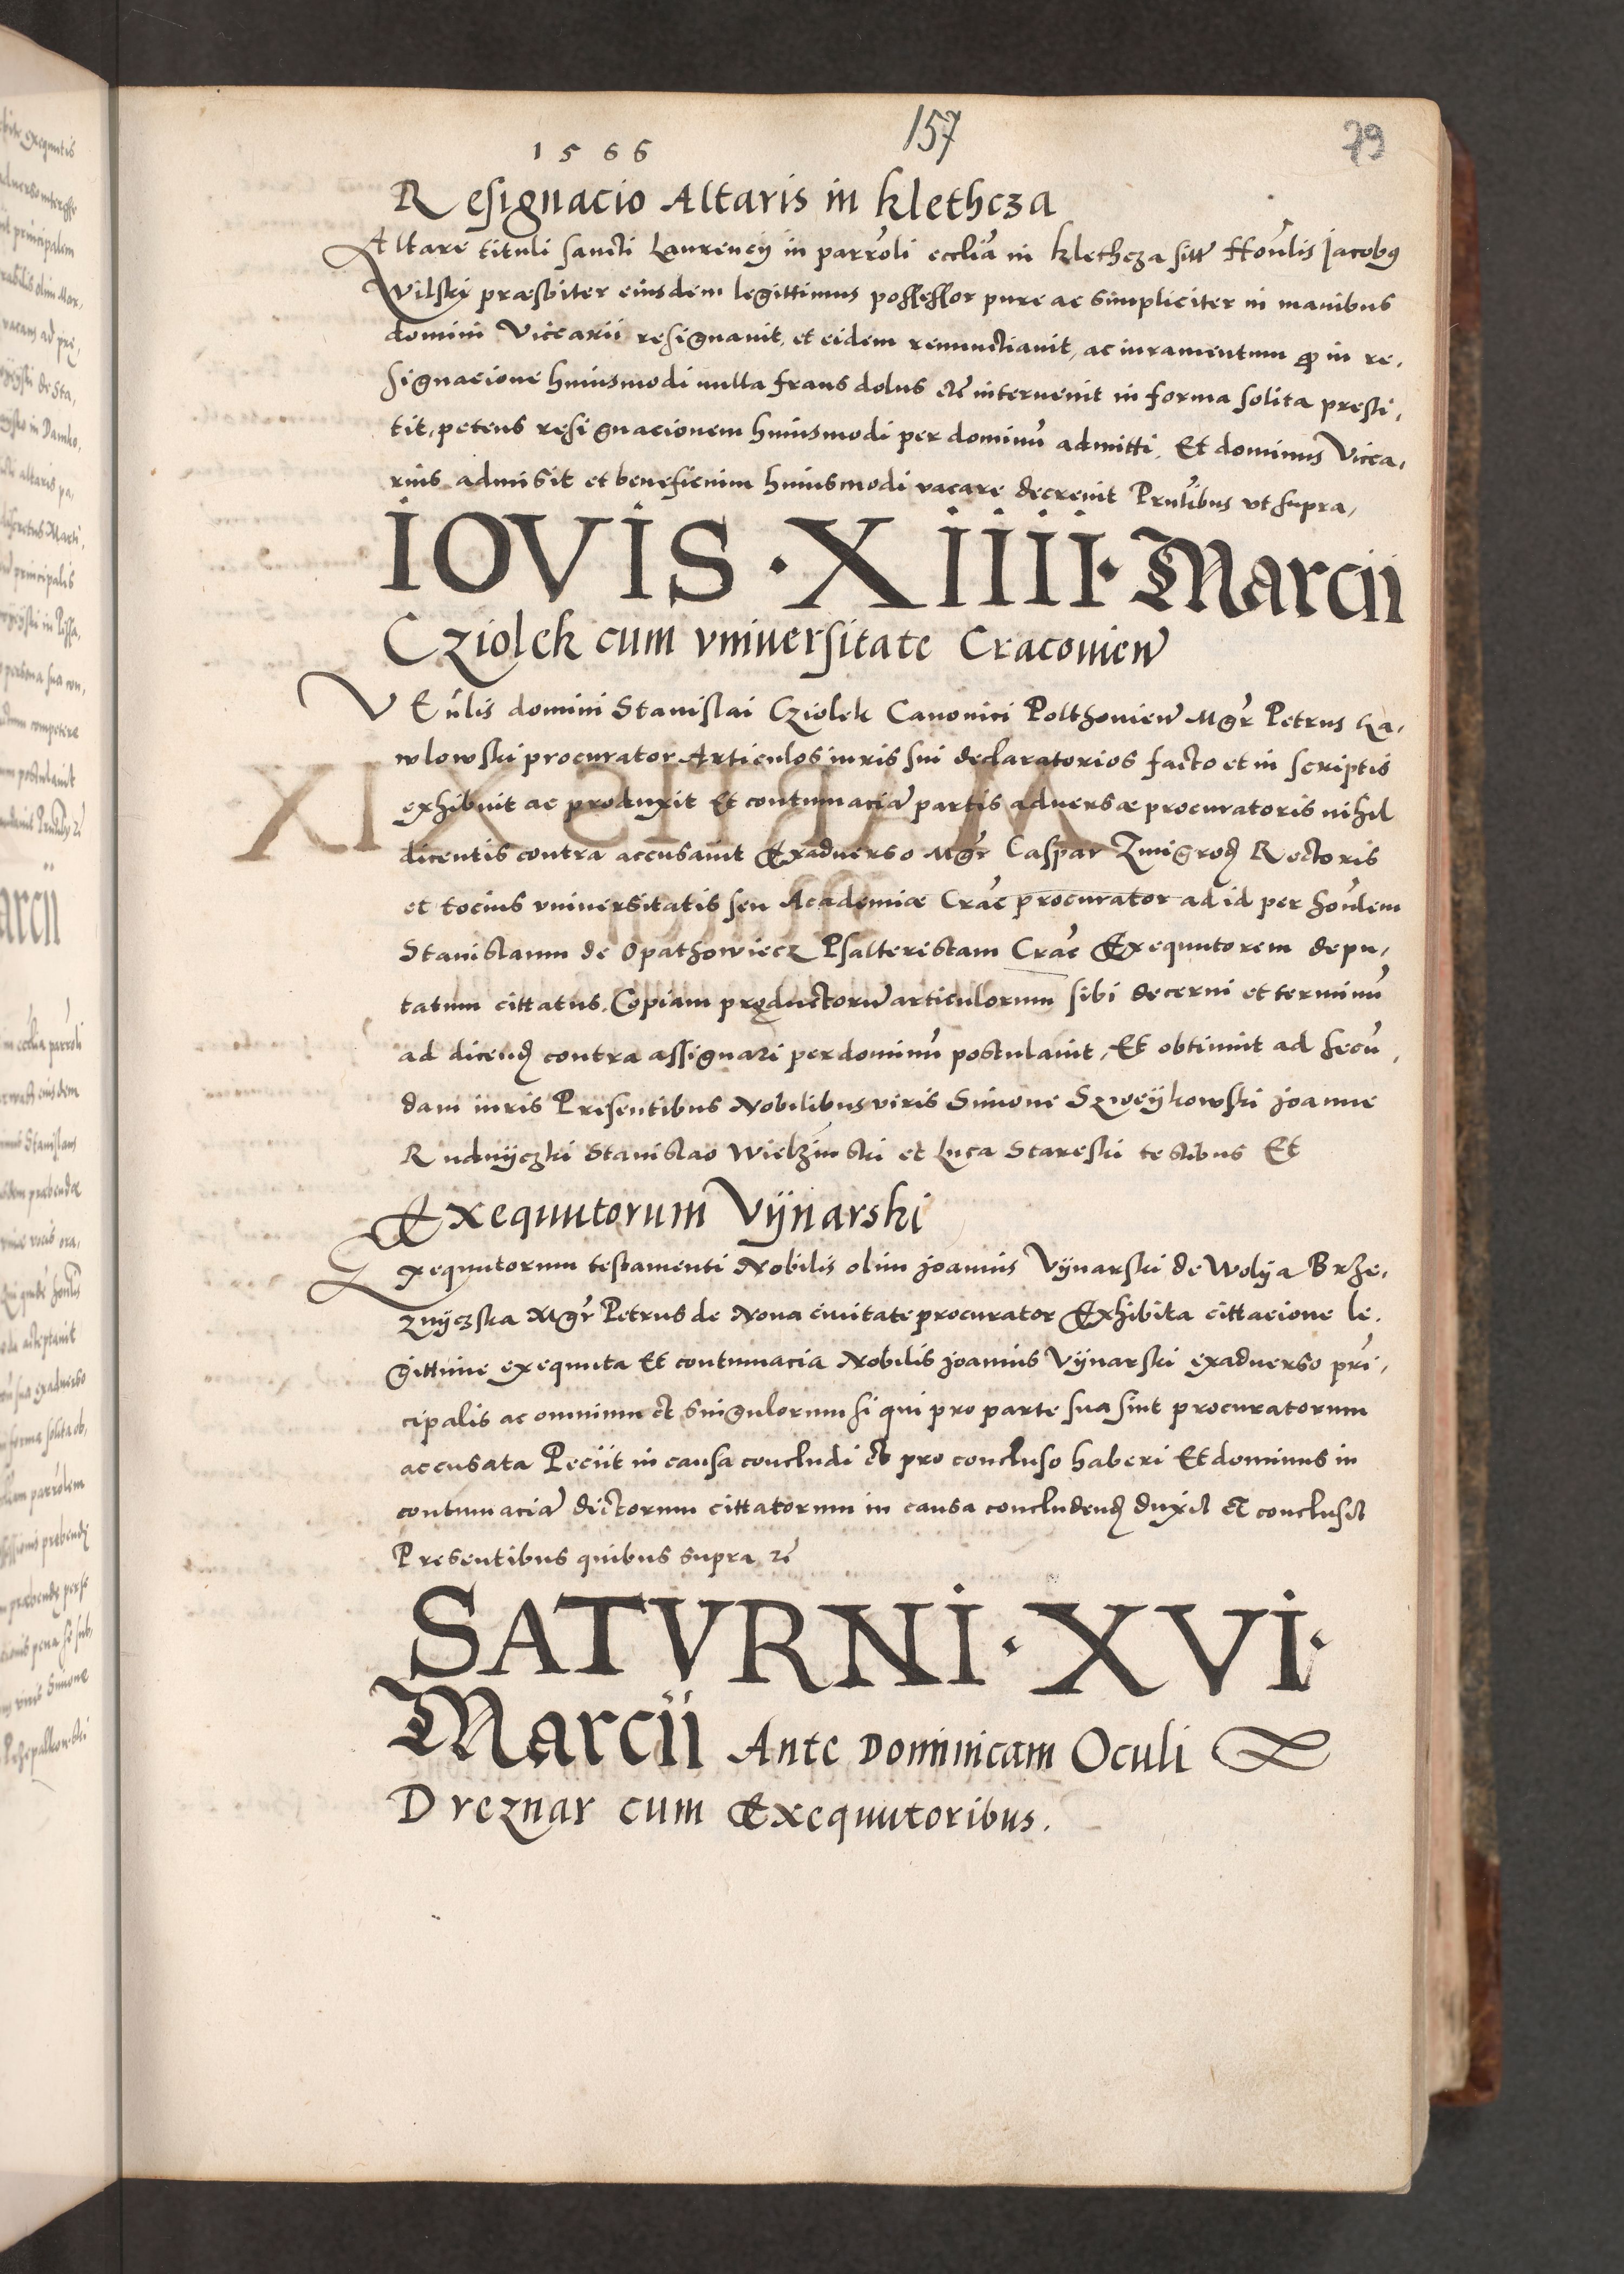 157
79
1566
Resignacio Altaris in Klethcza
Altare tituli sancti Laurencij in parroli ecclia in Klethcza sitt Honlis Jacobus
Wilsky præsbiter eiusdem legittimus possessor pure ac simpliciter in manibus
domini Vicearii resignauit, et eidem renunctiauit, ac iuramentum in re,
signacione huiusmodi nulla fraus dolus etc intervenit in forma solita presti,
tit, petens resignacionem huiusmodi per dominu admitti. Et dominus Vicea,
rius admisit et beneficium huiusmodi vacare decreuit Pntibus vt supra,
IOVIS · XIIII · Marcii
Cziolek cum vniuersitate Cracouien
VEnlis domini Stanislai Cziolek Canonici Polthouien Mgr Petrus Ka,
wlowski procurator Articulos iuris sui declaratorios facto et in scriptis
exhibuit ac produxit Et contumacia partis adversæ procuratoris nihil
dicentis contra accusauit Exadverso Mgr Caspar Zmigrod Rectoris
et tocius vniuersitatis seu Academiæ Crac procurator ad id per honlem
Stanislaum de Opathowiecz Psalteristam Crac Exequutorem depu,
tatum cittatus. Copiam productoru articulorum sibi decerni et terminu
ad dicend contra assignari per dominu postulauit, Et obtinuit ad secu,
dam iuris Presentibus Nobilibus viris Simone Szweykowski Joanne
Rudnyczki Stanislao Wielzinski et Luca Stareski testibus Et
Exequutorum Vynarski
Exequutorum testamenti Nobilis olim Joannis Vynarski de Wolya Brze,
znyczska Mgr Petrus de Noua ciuitate procurator Exhibita cittacione le,
gittime exequuta Et contumacia Nobilis Joannis Vynarski exadverso pri,
cipalis ac omnium et singulorum si qui pro parte sua sint procuratorum
accusata Peciit in causa concludi et pro concluso haberi Et dominus in
contumacia dictorum cittatorum in causa concludend duxit et conclusit
Presentibus quibus supra etc
SATVRNI · XVI ·
Marcii Ante Dominicam Oculi
Dreznar cum Exequutoribus.